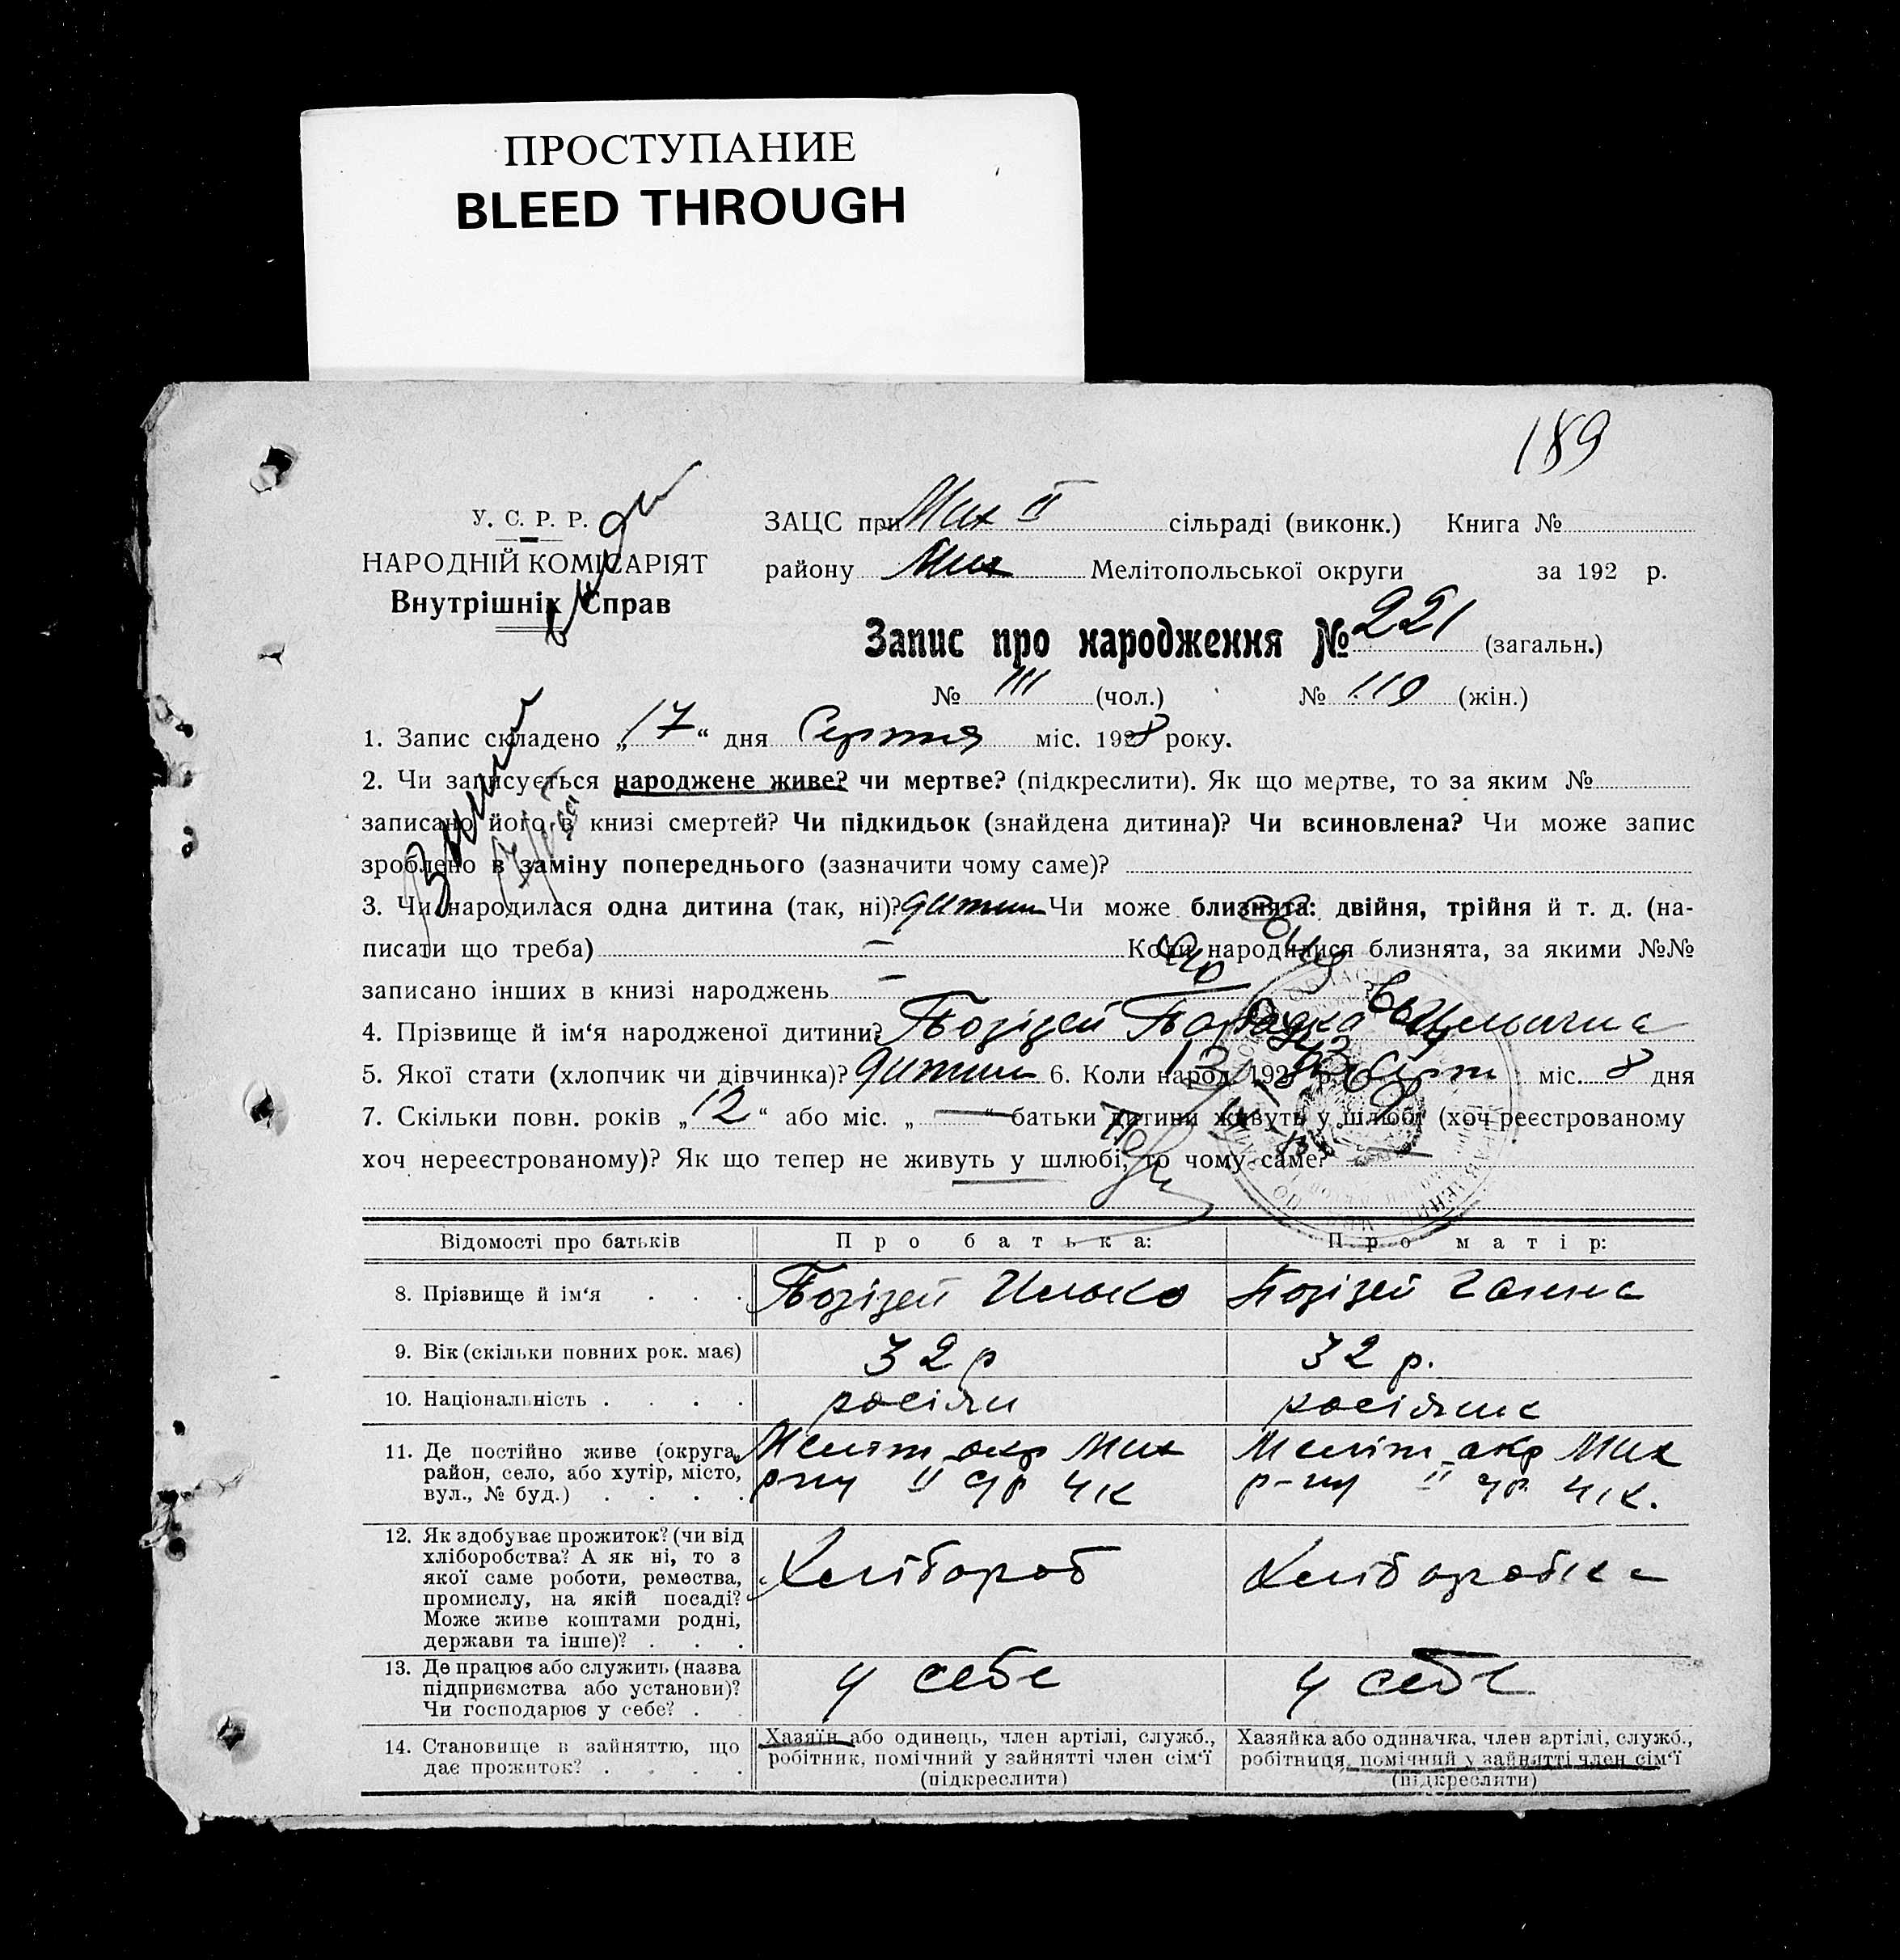 ПРОСТУПАНИЕ
BLEED THROUGH
189
У. С. Р. Р.
НАРОДНІЙ КОМІСАРІЯТ
Внутрішніх Справ
ЗАЦС при Мих II сільраді (виконк.) Книга №
району Мих Мелітопольської округи за 192 р.
Запис про народження № 221 (загальн.)
№ 111 (чол.) № 110 (жін.)
1. Запис складено „17“ дня Серпня міс. 1928 року.
2. Чи записується народжене живе? чи мертве? (підкреслити). Як що мертве, то за яким №
записано його в книзі смертей? Чи підкидьок (знайдена дитина)? Чи всиновлена? Чи може запис
зроблено в заміну попереднього (зазначити чому саме)?
3. Чи народилася одна дитина (так, ні)? Чи може близнята: двійня, трійня й т. д. (на-
писати що треба) — Коли народилися близнята, за якими №№
записано інших в книзі народжень —
4. Прізвище й ім‘я народженої дитини?
5. Якої стати (хлопчик чи дівчинка)? 6. Коли народ. 192 р. міс. 8 дня
7. Скільки повн. років „12“ або міс. „—“ батьки дитини живуть у шлюбі (хоч реєстрованому
хоч нереєстрованому)? Як що тепер не живуть у шлюбі, то чому саме? —
Відомості про батьків Про батька: Про матір:
8. Прізвище й ім‘я . . . Позігей Илько Позігей Ганна
9. Вік (скільки повних рок. має) 32 р 32 р.
10. Національність . . . . росіян росіянка
11. Де постійно живе (округа, Меліт окр Мих Меліт окр Мих
район, село, або хутір, місто, р-ну II р-ну II
вул., № буд.) . . . .
12. Як здобуває прожиток? (чи від
хліборобства? А як ні, то з
якої саме роботи, ремества, Хлібороб Хліборобка
промислу, на якій посаді?
Може живе коштами родні,
держави та інше)? . . .
13. Де працює або служить (назва у себе у себе
підприємства або установи)?
Чи господарює у себе? . .
14. Становище в зайняттю, що Хазяїн або одинець, член артілі, служб., Хазяйка або одиначка, член артілі, служб.,
дає прожиток? . . . . робітник, помічний у зайнятті член сім‘ї робітниця, помічний у зайнятті член сім‘ї
(підкреслити) (підкреслити)